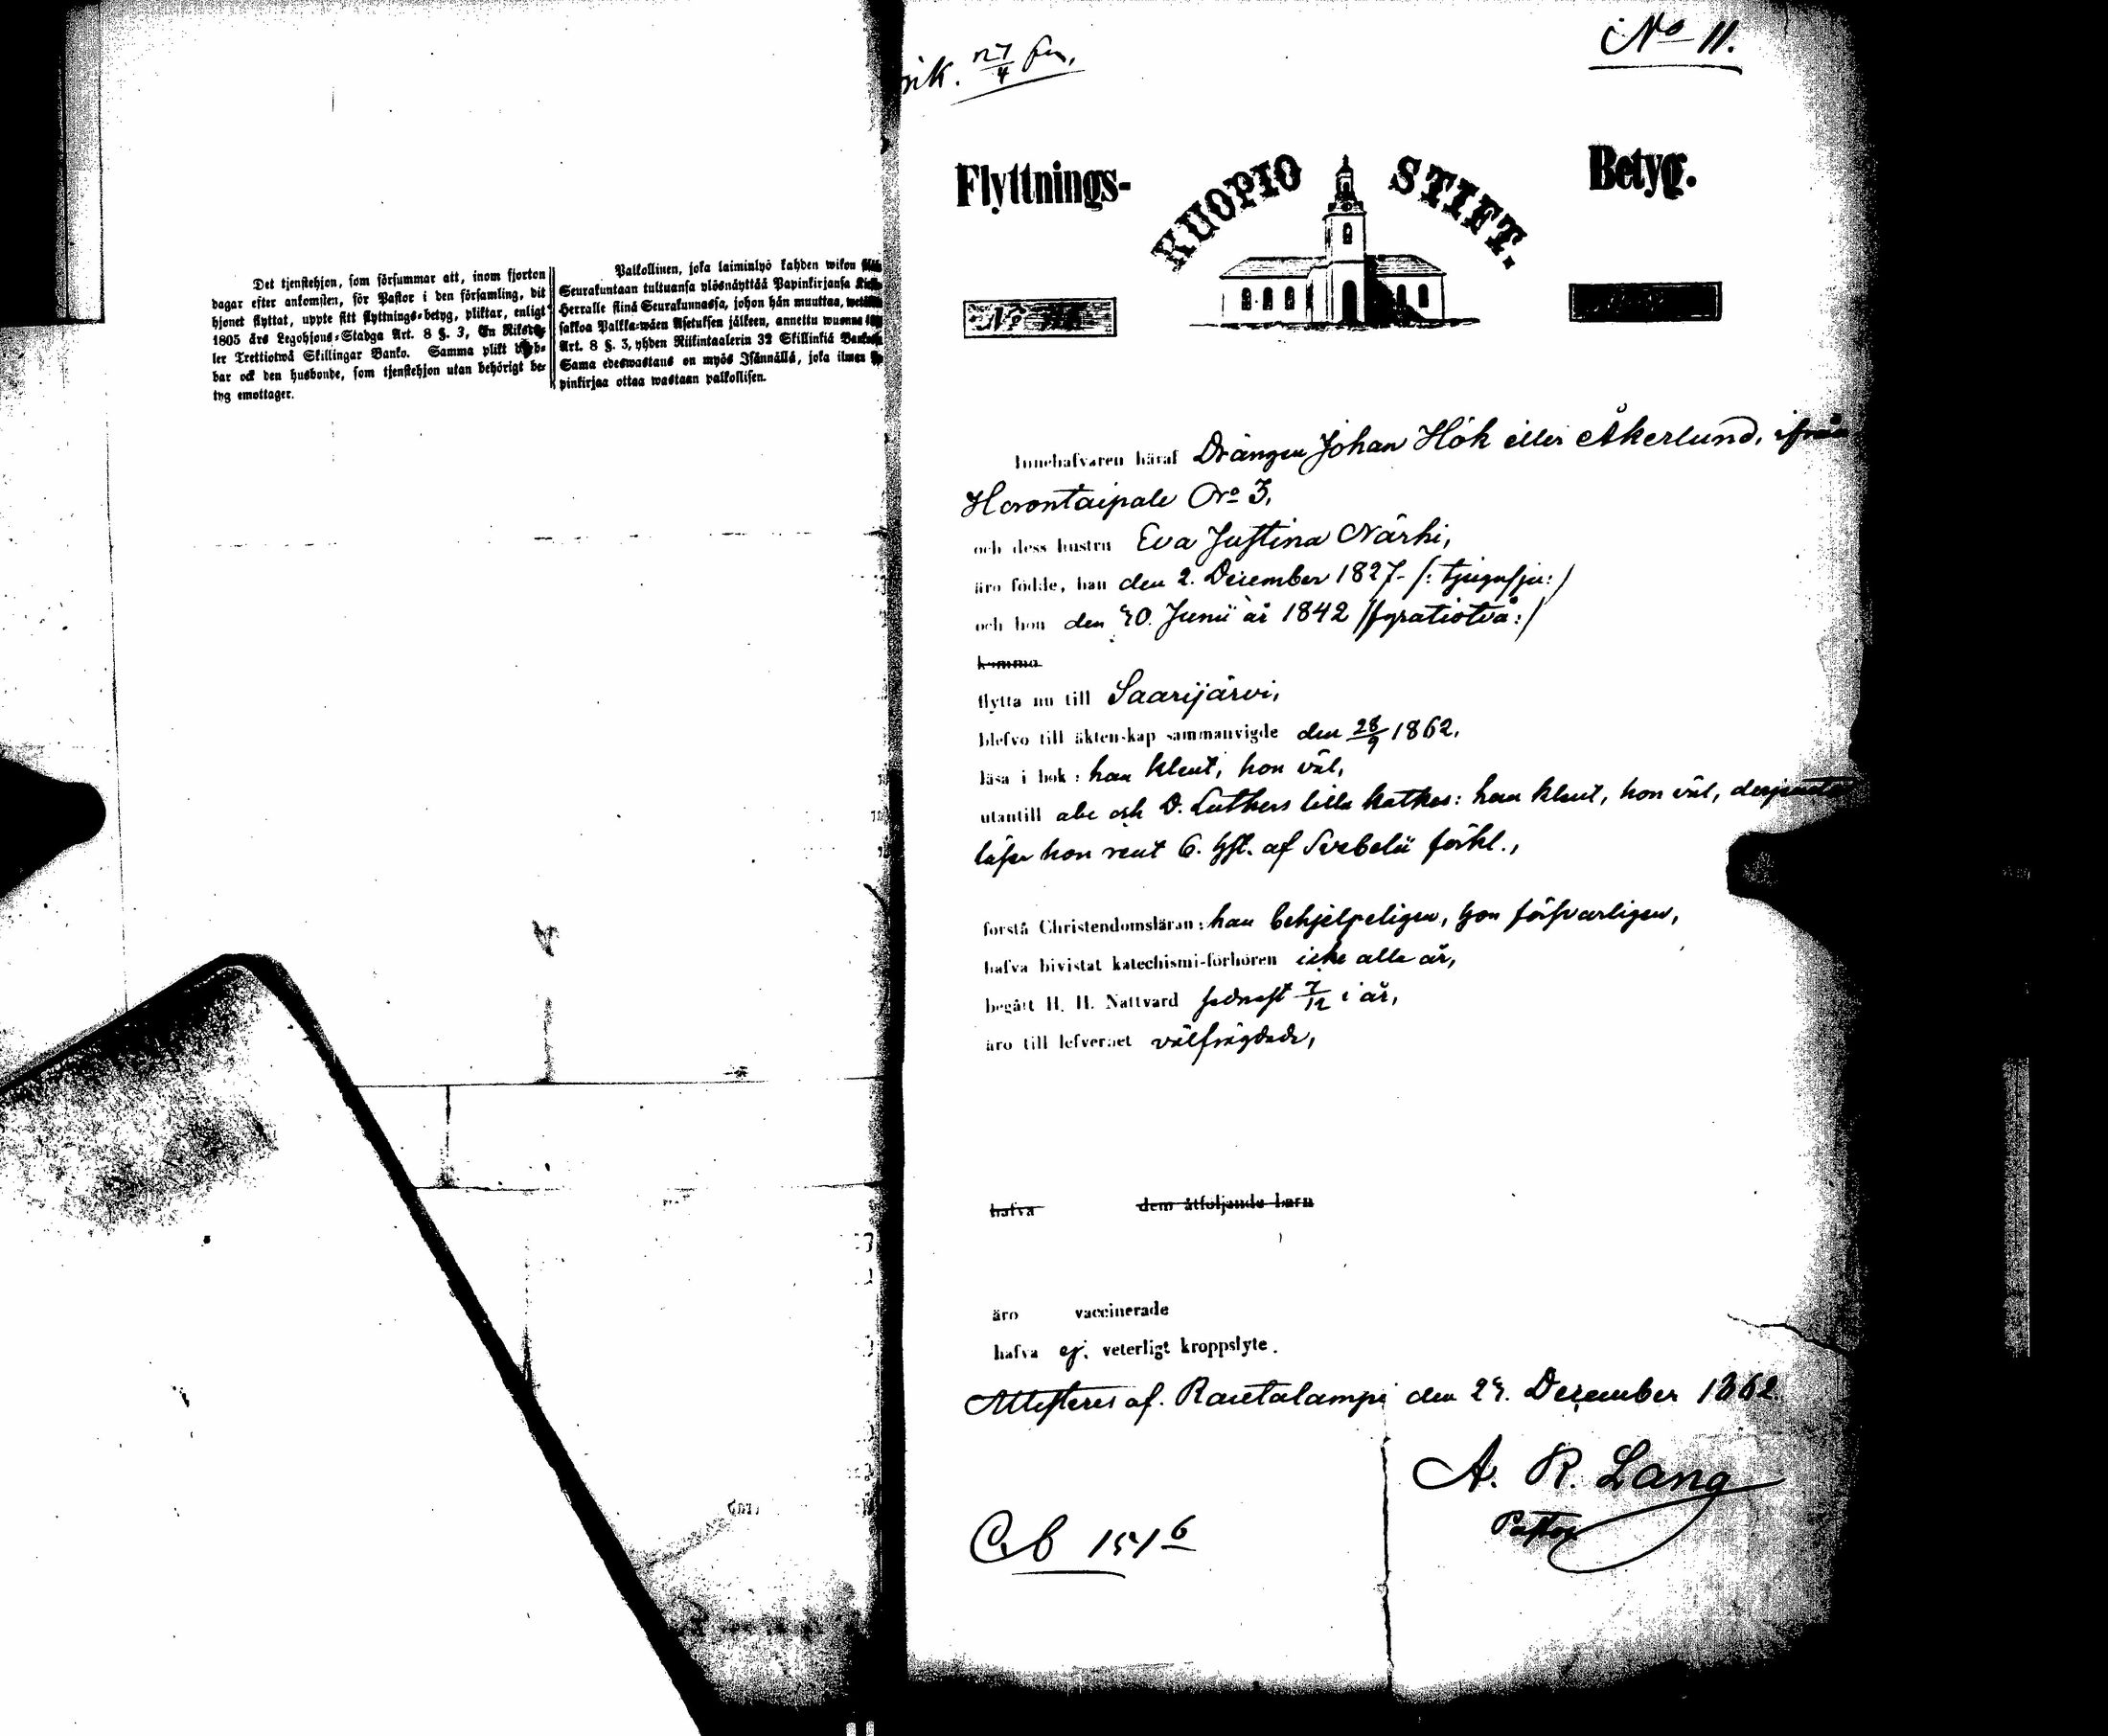 Det tjenstehjon, som försummar att, inom fjorton
dagar efter ankomsten, för Pastor i den församling, dit
hjonet flyttat, uppte sitt flyttnings-betyg, pliktar, enligt
1805 års Legohjons-Stadga Art. 8 §. 3, En Riksda-
ler Trettiotwå Skillingar Banko. Samma plikt
bar ock den husbonde, som tjenstehjon utan behörigt be-
tyg emottager.
Palkollinen, joka laiminlyö kahden wikon
Seurakuntaan tultuansa ylösnäyttää Papinkirjansa
Herralle siinä Seurakunnassa, johon hän muuttaa,
sakkoa Palkka-wäen Asetuksen jälkeen, annettu wuonna
Art. 8 §. 3, yhden Riikintaalerin 32 Skillinkiä
Sama edeswastaus on myös Isännällä, joka ilman
pinkirjaa ottaa wastaan palkollisen.
No 11.
Flyttnings- KUOPIO STIFT. Betyg.
Innehafvaren häraf Drängen Johan Hök eller Åkerlund, ifrån
Horontaipale No 3,
och dess hustru Eva Justina Närhi,
äro födde, han den 2. December 1827- /: tjugusju:/
och hon den 20. Junii år 1842 /:fyratiotvå:/
komma
flytta nu till Saarijärvi,
blefvo till äktenskap sammanvigde den 28/9 1862.
läsa i bok: han klent, hon väl,
utantill abc och D. Luthers lilla katkes: han klent, hon väl,
läser hon rent 6. hst. af Svebelii förkl.,
förstå Christendomsläran: han behjelpeligen, hon försvarligen,
hafva bivistat katechismi-förhören icke alla år,
begått H. H. Nattvard sednast 7/12 i år,
äro till lefvernet välfrägdade,
hafva dem åtföljande barn
äro vaccinerade
hafva ej veterligt kroppslyte.
Attesteras af. Rautalampi den December 1862.
A. R. Lang
Pastor